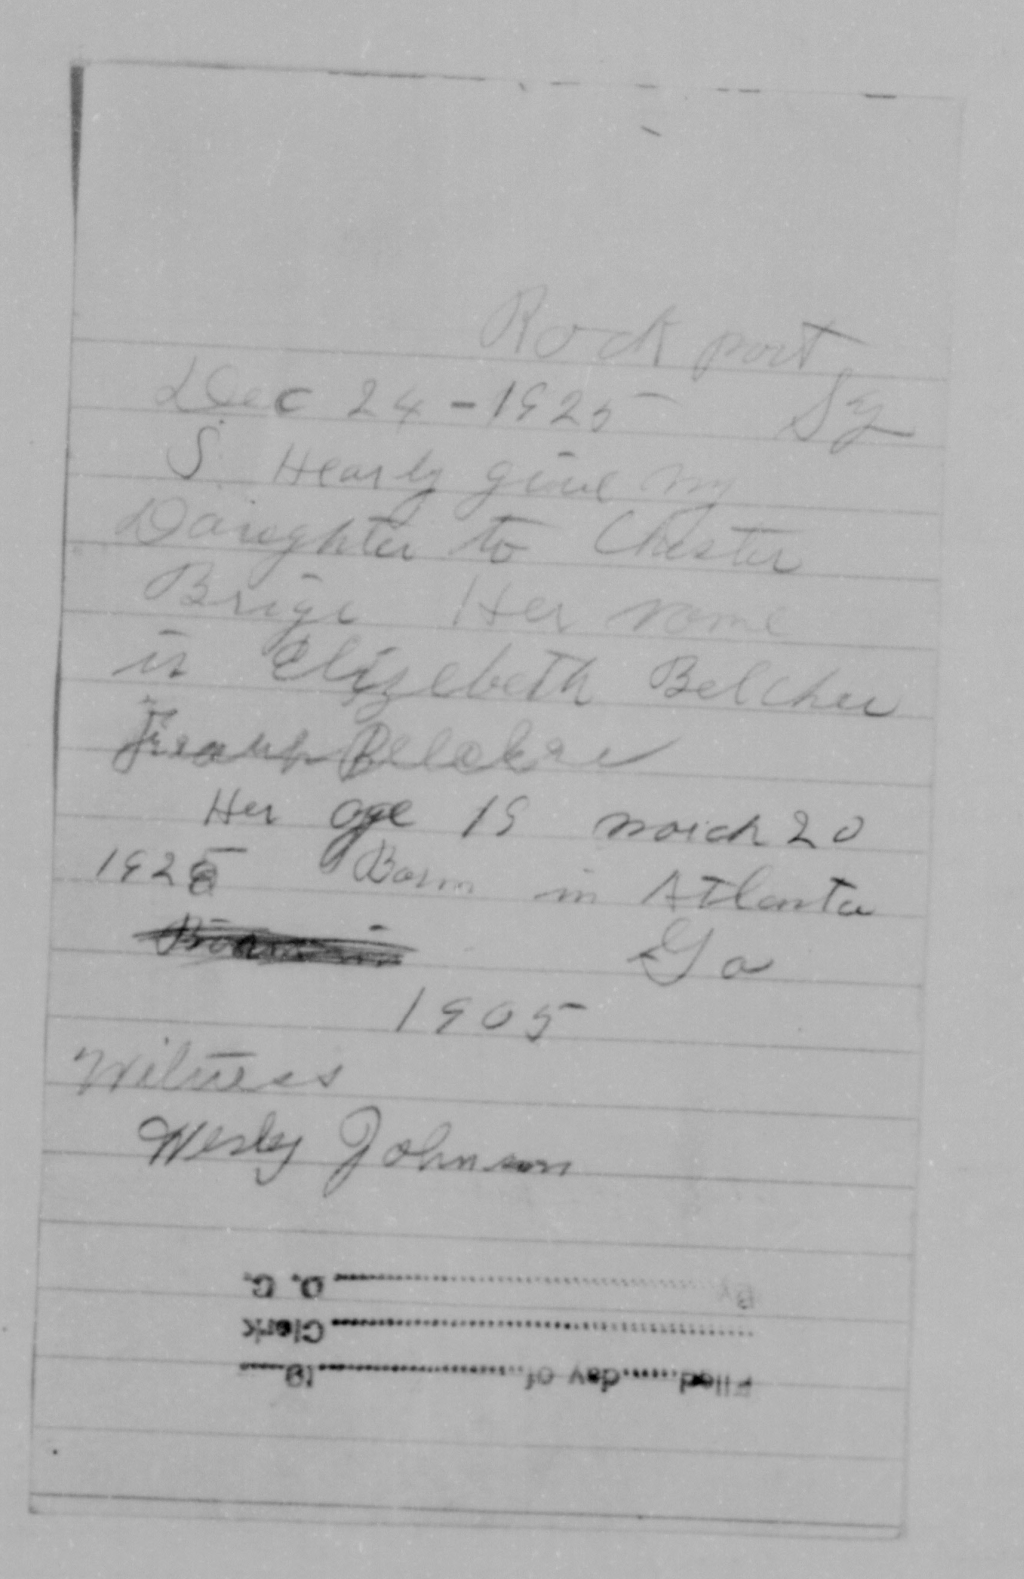 Rock port
Dec 24 - 1925 Ky
I Hearly give my
Daughter to Chester
Brige Her name
is Elizebeth Belcher
Her age 19 march 20
1925 Born in Atlanta
Ga
1905
Witness
Wesly Johnson
By
D. C.
Clerk
Filed day of 19